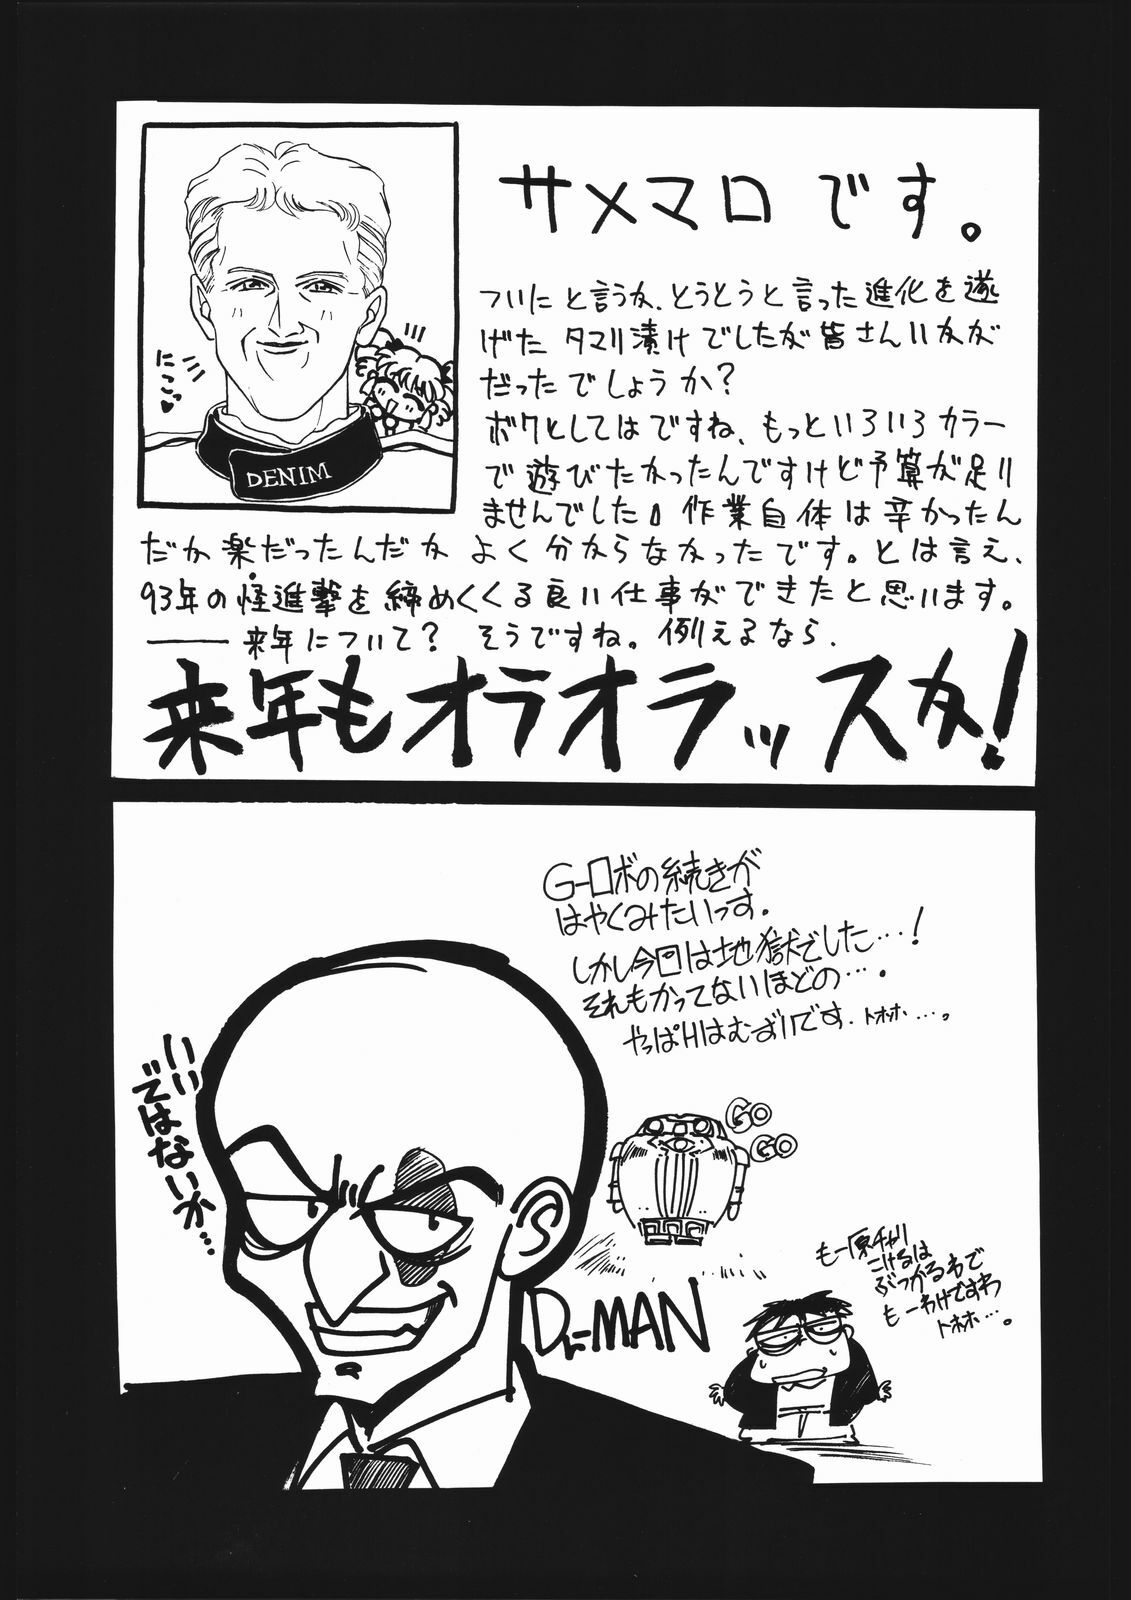 サメマロです。
ついにと言うか、とうとうと言った進化を遂
げたタマリ漬けでしたが皆さんいかが
だったでしょうか？
ボクとしてはですね、もっといろいろカラー
で遊びたかったんですけど予算が足り
ませんでした。作業自体は辛かったん
だか楽だったんだかよく分からなかったです。とは言え、
93年の怪進撃を締めくくる良い仕事ができたと思います。
――来年について？ そうですね。例えるなら、
来年もオラオラッスね!
にこっ♥
DENIM
G-ロボの続きが
はやくみたいっす。
しかし今回は地獄でした…!
それもかってないほどの…。
やっぱHはむずいです. トホホ…。
いい
ではないか…
GO
GO
Dr-MAN
もー原チャリ
こけるは
ぶつかるわで
もーわけですわ
トホホ…。